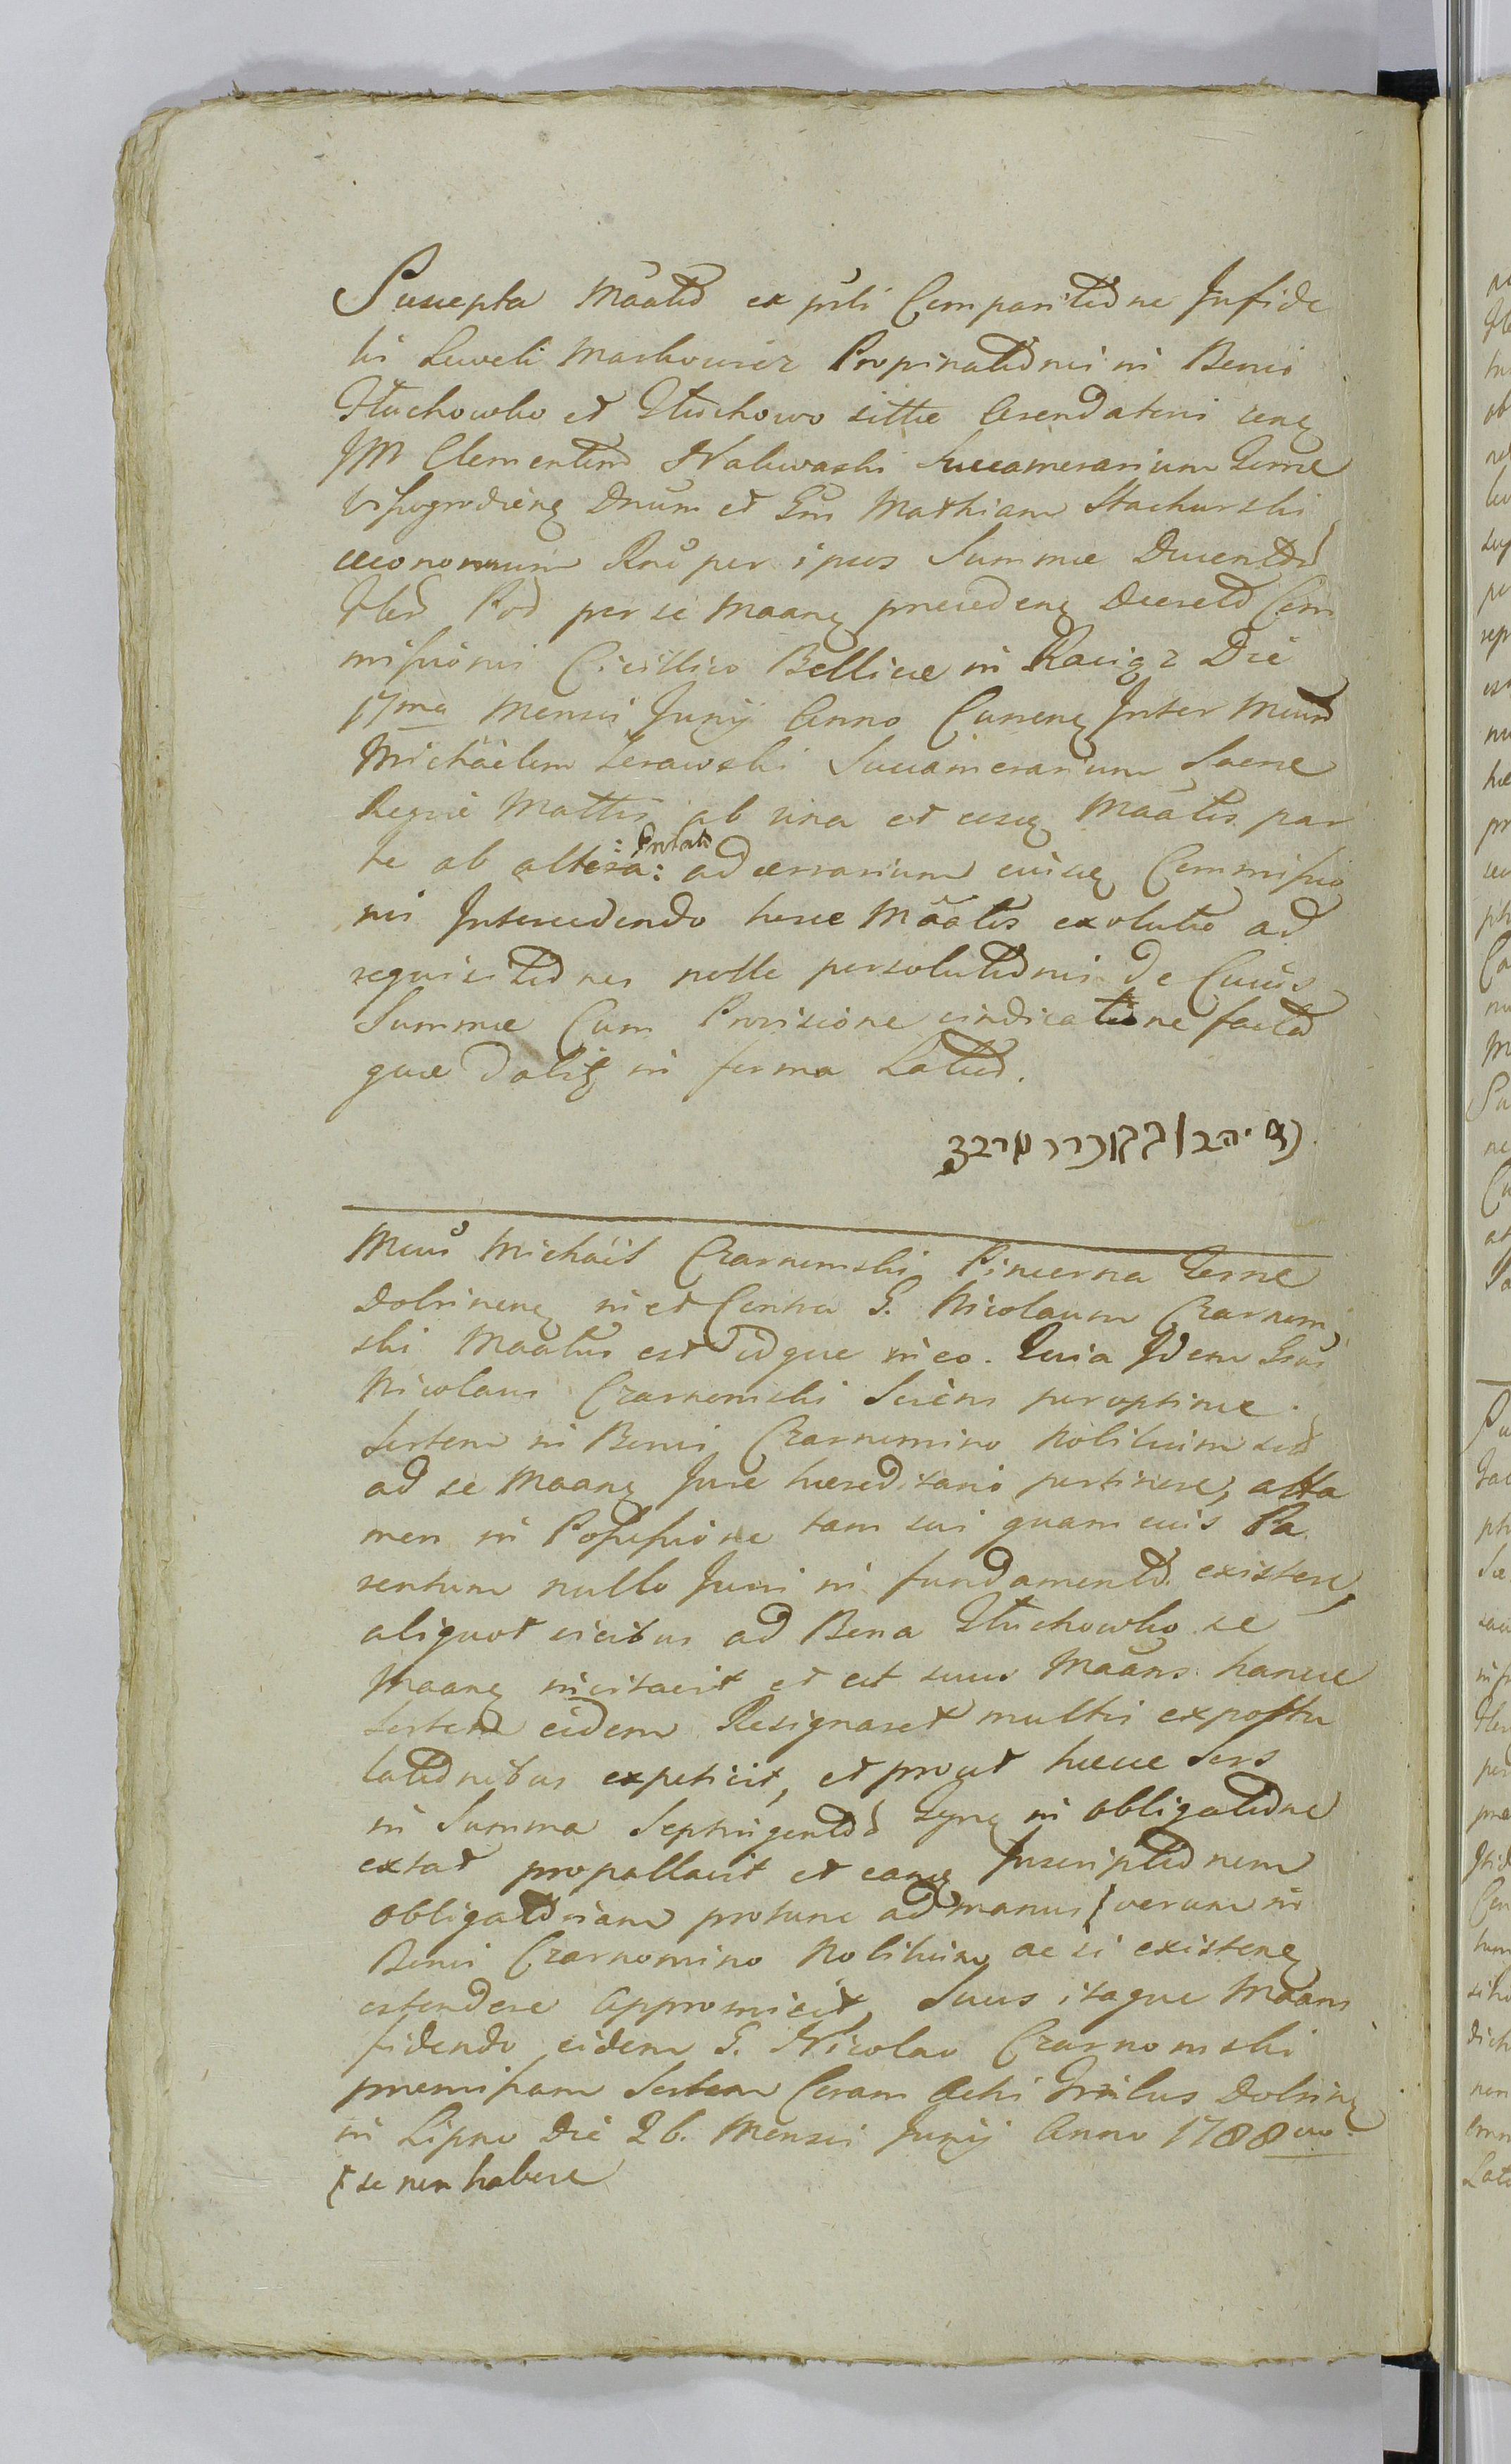 Suscepta Maatio ex pnti Comparitione Infide
lis Leweli Markowicz Propinationis in Bonis
Tłuchowko et Tłuchowo sittae Arendatoris cenę
JM Clementem Nakwaski Succamerarium Terrae
Vyszogrodienę Dnum et Gm Mathiam Stachurski
aeconomum Rnò per ipsos Summae Ducentor
flor Pol per se Maanę precedenę Decreto Com
missionis Civillico Bellicae in Raciąż Die
17ma Mensis Junij Anno Currenę Inter Mcum
Michäelem Zerawski Succamerarium Sacrae
Regiae Mattis ab una et eosę Maatis par
te ab altera : Prolato : ad aerrarium eiusę Commissio
nis Intercedendo hocce Maatis exolutio ad
requisitiones nolle persolutionis de Cuius
Summae Cum Provisione vindicatione facta
quae Datię in forma Latio.
Mcus Michäel Czarnomski Pincerna Terrae
Dobrinenę in et Contra G. Nicolaum Czarnom
ski Maatus est idque in eo. Quia Idem Gsus
Nicolaus Czarnomski Sciens peroptime
Sortem in Bonis Czarnomino Nobilium sito
ad se Maanę Jure haereditario pertinere, atta
men in Possessione tam sui quam eius Pa
rentum nullo Juris in fundamento existere,
aliquot vicibus ad Bona Tłuchowko se
Maanę invitavit et ut suus Maans hancce
Sortem eidem Resignaret multis expostu
lationibus expetivit, et prout haecce Sors
in Summa Septingentor Tynę in obligatione
extat propallavit et eamę Inscriptionem
obligatoriam protunc ad manus ⁅ verum in
Bonis Czarnomino Nobilium ac si existenę
ostendere appromisit, Suus itaque Maans
fidendo eidem G. Nicolao Czarnomski
premissam Sortem Coram Actis Trrilus Dobrinę
in Lipno Die 26. Mensis Junij Anno 1788vo
⁅ se non habere